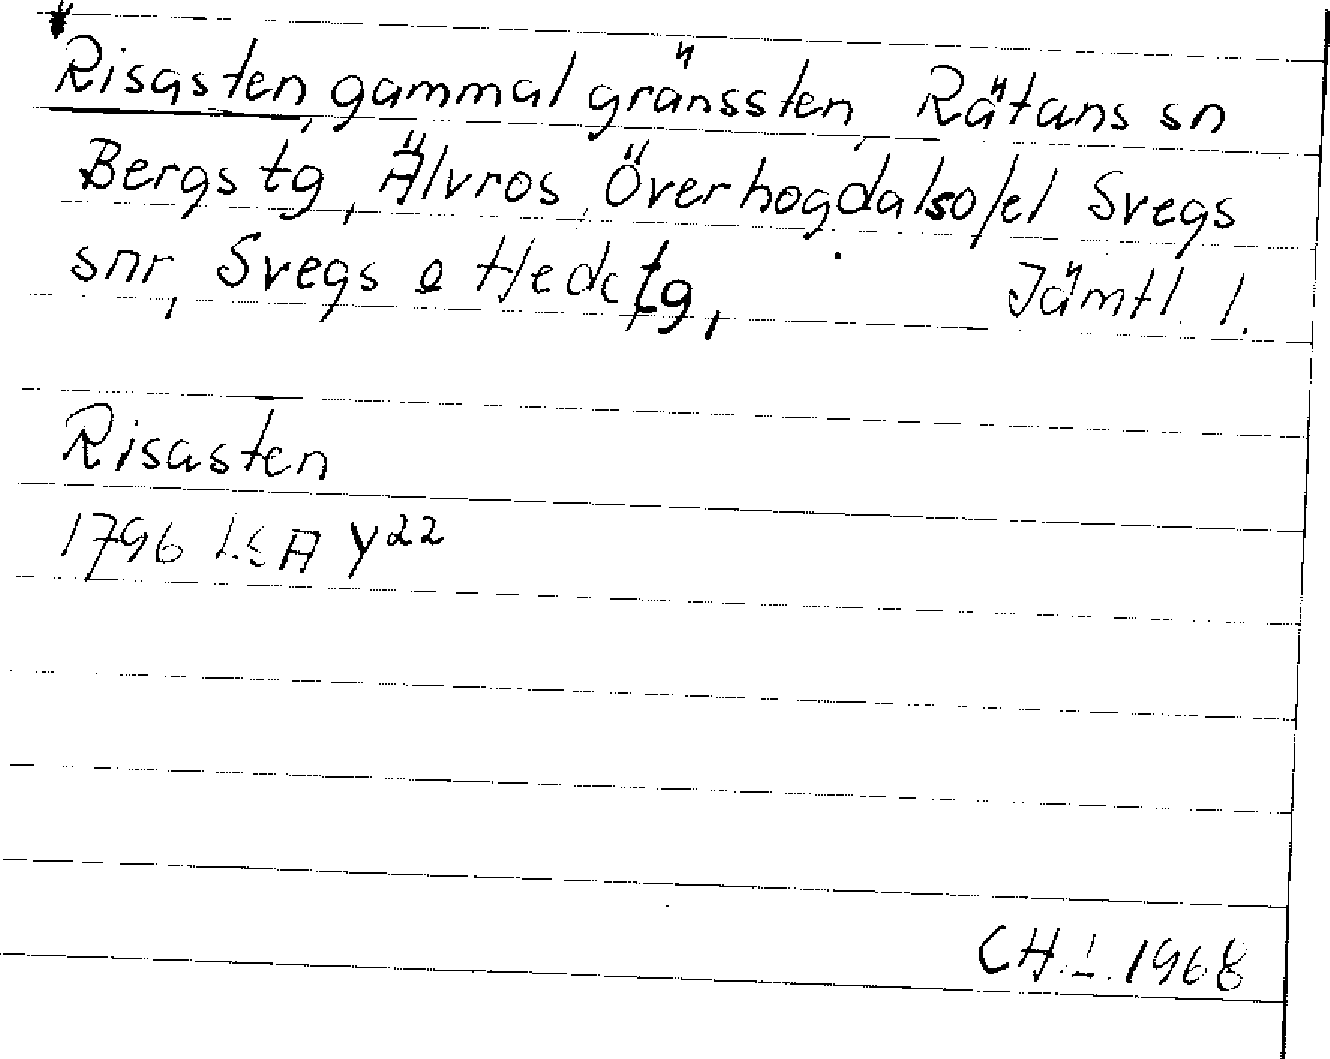 Risasten, gammal gränssten, Rätans sn
Bergs tg, Älvros, Överhogdals o/el Svegs
snr, Svegs o Hede tg, Jämtl. l.
Risasten
1796 LSA Y22
CH.L. 1968